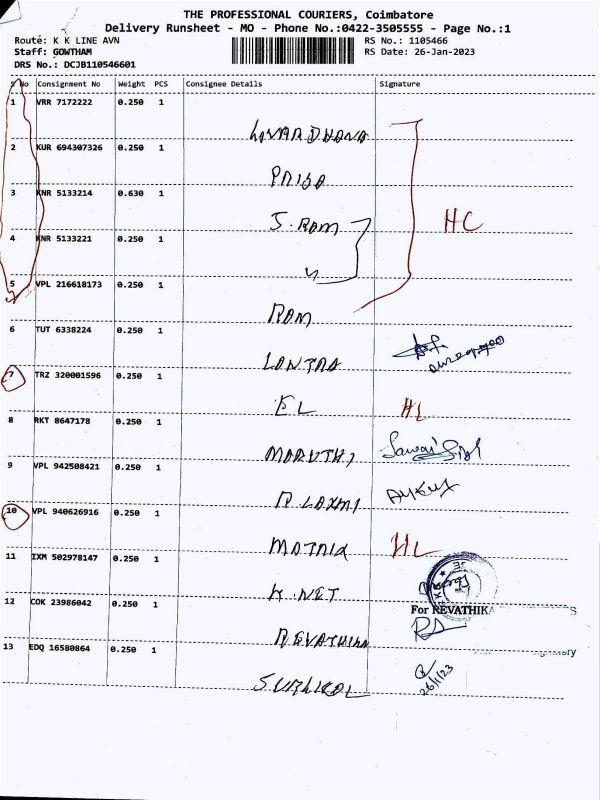 THE PROFESSIONAL COURIERS, Coimbatore
Delivery Runsheet - MO - Phone No.:0422-3505555 - Page No.:1
Route: K K LINE AVN
RS No.: 1105466
Staff: GOWTHAM
RS Date: 26-Jan-2023
DRS No.: DCJB110546601
S No Consignment No Weight PCS Consignee Details Signature
1 VRR 7172222 0.250 1
2 KUR 694307326 0.250 1
PRIYA
3 KNR 5133214 0.630 1
J. RAM HC
4 KNR 5133221 0.250 1
5 VPL 216618173 0.250 1
RAM
6 TUT 6338224 0.250 1
7 TRZ 320001596 0.250 1
EL HL
8 RKT 8647178 0.250 1
MARUTHI
9 VPL 942508421 0.250 1
R LAXMI
10 VPL 940626916 0.250 1
MATRIX HL
11 IXM 502978147 0.250 1
K. NET
For REVATHIKA
12 COK 23986042 0.250 1
REVATHIKA
13 EDQ 16580864 0.250 1
26/1/23